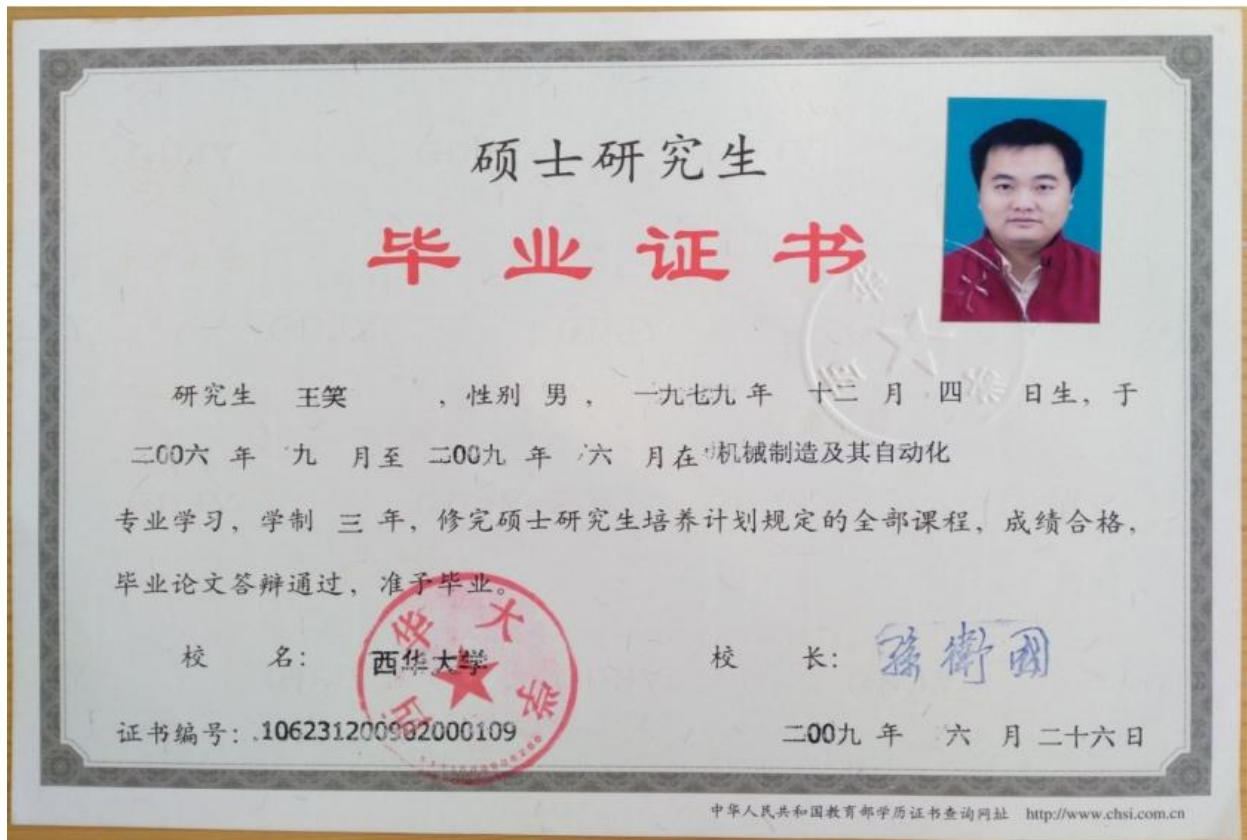 硕士研究生
毕业证书
研究生 王笑 ，性别 男， 一九七九年 十二 月 四 日生，于
二00六 年 九 月至 二00九 年 六 月在 机械制造及其自动化
专业学习，学制 三 年，修完硕士研究生培养计划规定的全部课程，成绩合格，
毕业论文答辩通过，准予毕业。
校 名： 西华大学
西华大学
校 长： 孫衛國
证书编号：106231200902000109
二00九 年 六 月 二十六 日
中华人民共和国教育部学历证书查询网址 http://www.chsi.com.cn